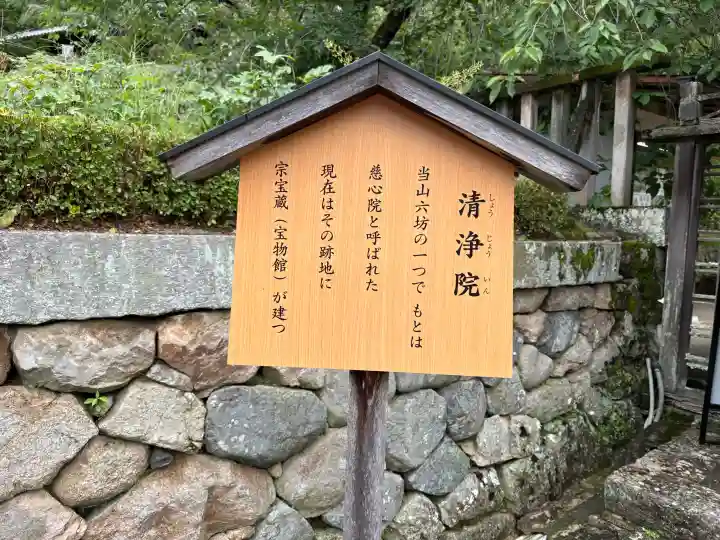 清浄院
しょう じょう いん
当山六坊の一つで もとは
慈心院と呼ばれた
現在はその跡地に
宗宝蔵（宝物館）が建つ